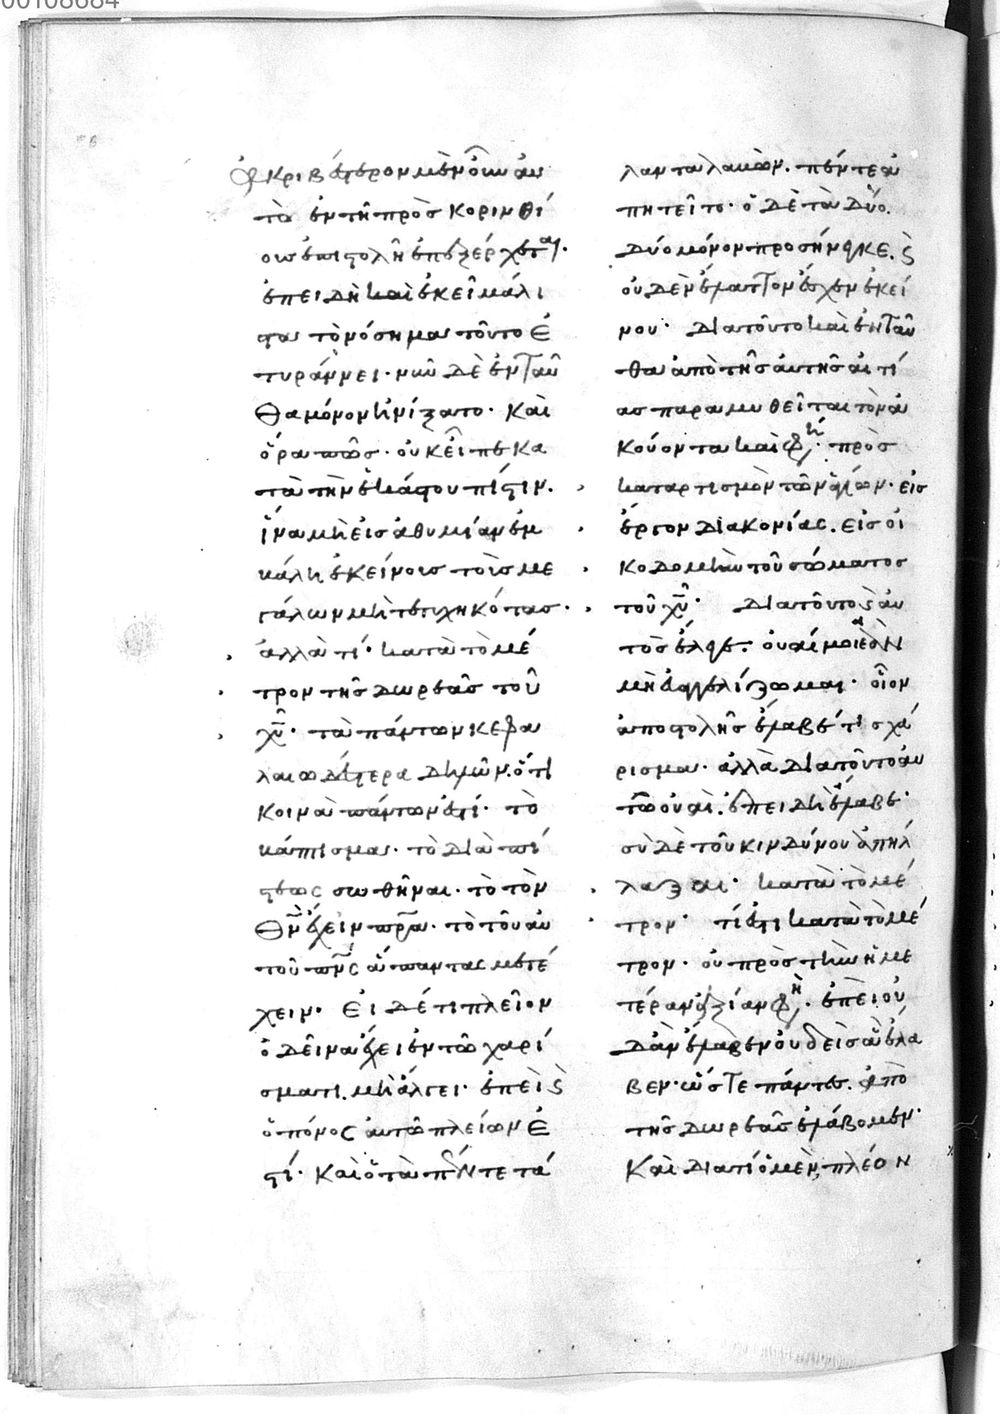 00108684
ἀκριβέστερον μὲν οὖν αυ
τὰ ἐν τῆ πρὸς κορινθί
ους ἐπιστολῆ ἐπεξέρχεται·
ἐπειδὴ καὶ ἐκεῖ μάλι
στα τὸ νόσημα τοῦτο ἐ
τυράννει· νῦν δὲ ἐνταῦ
θα μόνον ἠνίξατο· καὶ
ὅρα πῶς· οὐκ εἶπε κα
τὰ τὴν ἑκάστου πίστιν·
ἵνα μὴ εἰς ἀθυμίαν ἐμ
βάλη ἐκείνους τοὺς με
γάλων μὴ τετυχηκότας·
ἀλλὰ τί· κατὰ τὸ μέ
τρον τῆς δωρεᾶς τοῦ
χῦ· τὰ πάντων κεφα
λαιωδέστερα δι ἡμῶν ὅτι
κοινὰ πάντων ἐστί· τὸ
βάπτισμα· τὸ διὰ πί
στεως σωθῆναι· τὸ τὸν
θν ἔχειν πρα· τὸ τοῦ αυ
τοῦ πνς ἅπαντας μετέ
χειν· Εἰ δέ τι πλεῖον
ὁ δεῖνα ἔχει ἐν τῶ χαρί
σματι. μὴ ἄλγει· ἐπεὶ ϛ
ὁ πόνος αὐτῶ πλείων ἐ
στί· Καὶ ὁ τὰ πέντε τά
λαντα λαβὼν· πέντε ἀ
πητεῖτο· ὁ δὲ τὰ δύο.
δύο μόνον προσήνεγκε. ϛ
οὐδὲν ἔλαττον ἔσχεν ἐκεί
νου· Διατοῦτο καὶ ἐνταῦ
θα ἀπὸ τῆς αὐτῆς αἰτί
ας παραμυθεῖται τὸν ἀ
κούοντα καὶ φη· πρὸς
καταρτισμὸν τῶν ἁγίων· εἰς
ἔργον διακονίας. εἰς οἰ
κοδομὴν τοῦ σώματος
τοῦ χῦ· Διατοῦτο ϛ αυ
τὸς ἔλεγε· οὐαί μοι ἐὰν
μὴ εὐαγγελίζωμαι· οἷον
ἀποστολῆς ἔλαβέ τις χά
ρισμα· ἀλλὰ διατοῦτο αυ
τῶ οὐαὶ. ἐπειδὴ ἔλαβε·
σὺ δὲ τοῦ κινδύνου ἀπήλ
λαξαι· κατὰ τὸ μέ
τρον· τί ἐστι κατὰ τὸ μέ
τρον· οὐ πρὸς τὴν ἡμε
τέραν ἀξίαν φη· ἐπεὶ οὐ
δ᾽ ἂν ἔλαβεν οὐδεὶς ἃ ἔλα
βεν· ὥστε πάντες. ἀπὸ
τῆς δωρεᾶς ἐλάβομεν·
Καὶ διατί ὁ μὲν, πλέον